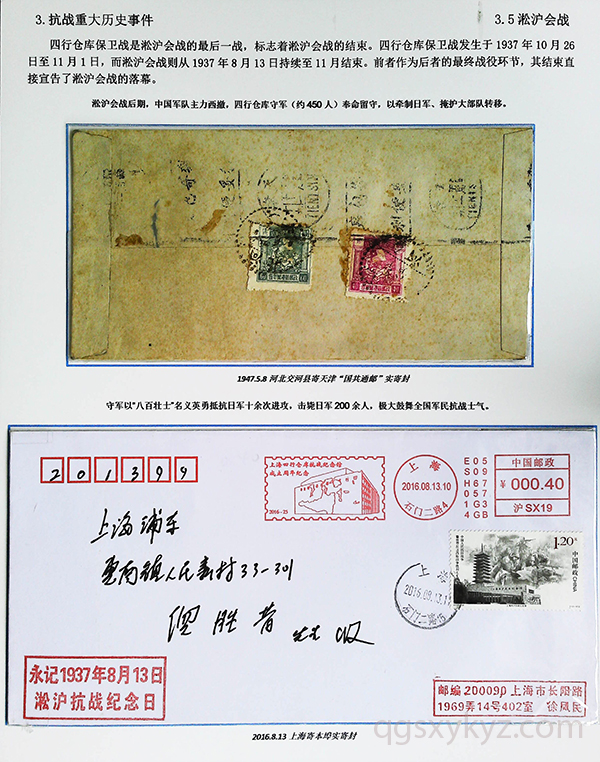 3. 抗战重大历史事件
3.5 淞沪会战
四行仓库保卫战是淞沪会战的最后一战，标志着淞沪会战的结束。四行仓库保卫战发生于 1937 年 10 月 26
日至 11 月 1 日，而淞沪会战则从 1937 年 8 月 13 日持续至 11 月结束。前者作为后者的最终战役环节，其结束直
接宣告了淞沪会战的落幕。
淞沪会战后期，中国军队主力西撤，四行仓库守军（约 450 人）奉命留守，以牵制日军、掩护大部队转移。
TIENTSIN
1947.5.8 河北交河县寄天津“国共通邮”实寄封
守军以“八百壮士”名义英勇抵抗日军十余次进攻，击毙日军 200 余人，极大鼓舞全国军民抗战士气。
201399
上海四行仓库抗战纪念馆
成立周年纪念
2016-25
上海
2016.08.13.10
石门二路4
E05
S09
H67
057
1G3
4GB
中国邮政
¥ 000.40
沪 SX19
上海浦东
惠南镇人民新村33-301
倪胜昔 先生 收
1.20
中国邮政
CHINA
上海
2016.08.13.1
石门二路
永记1937年8月13日
淞沪抗战纪念日
邮编 200090 上海市长阳路
1969弄14号402室 徐凤民
2016.8.13 上海寄本埠实寄封
qgsxykyz.com